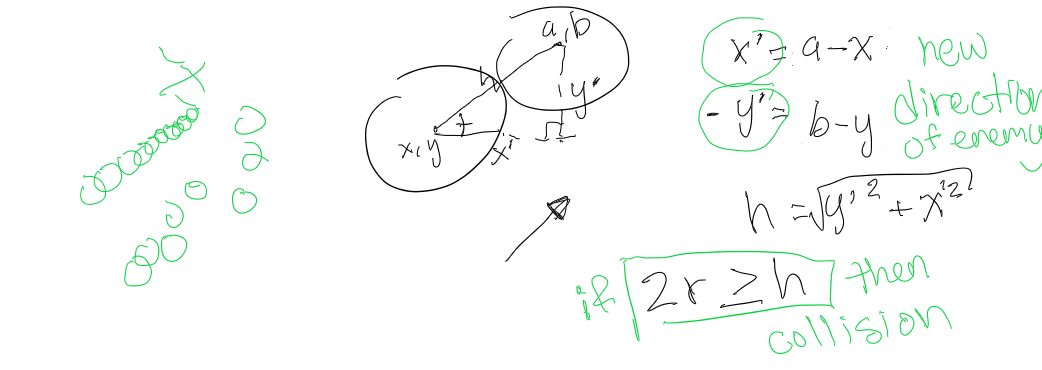 a,b
h
y'
x,y
x'
x' = a-x
-y' = b-y
new
direction
of enemy
h = √y'² + x'²
if 2r ≥ h then
collision